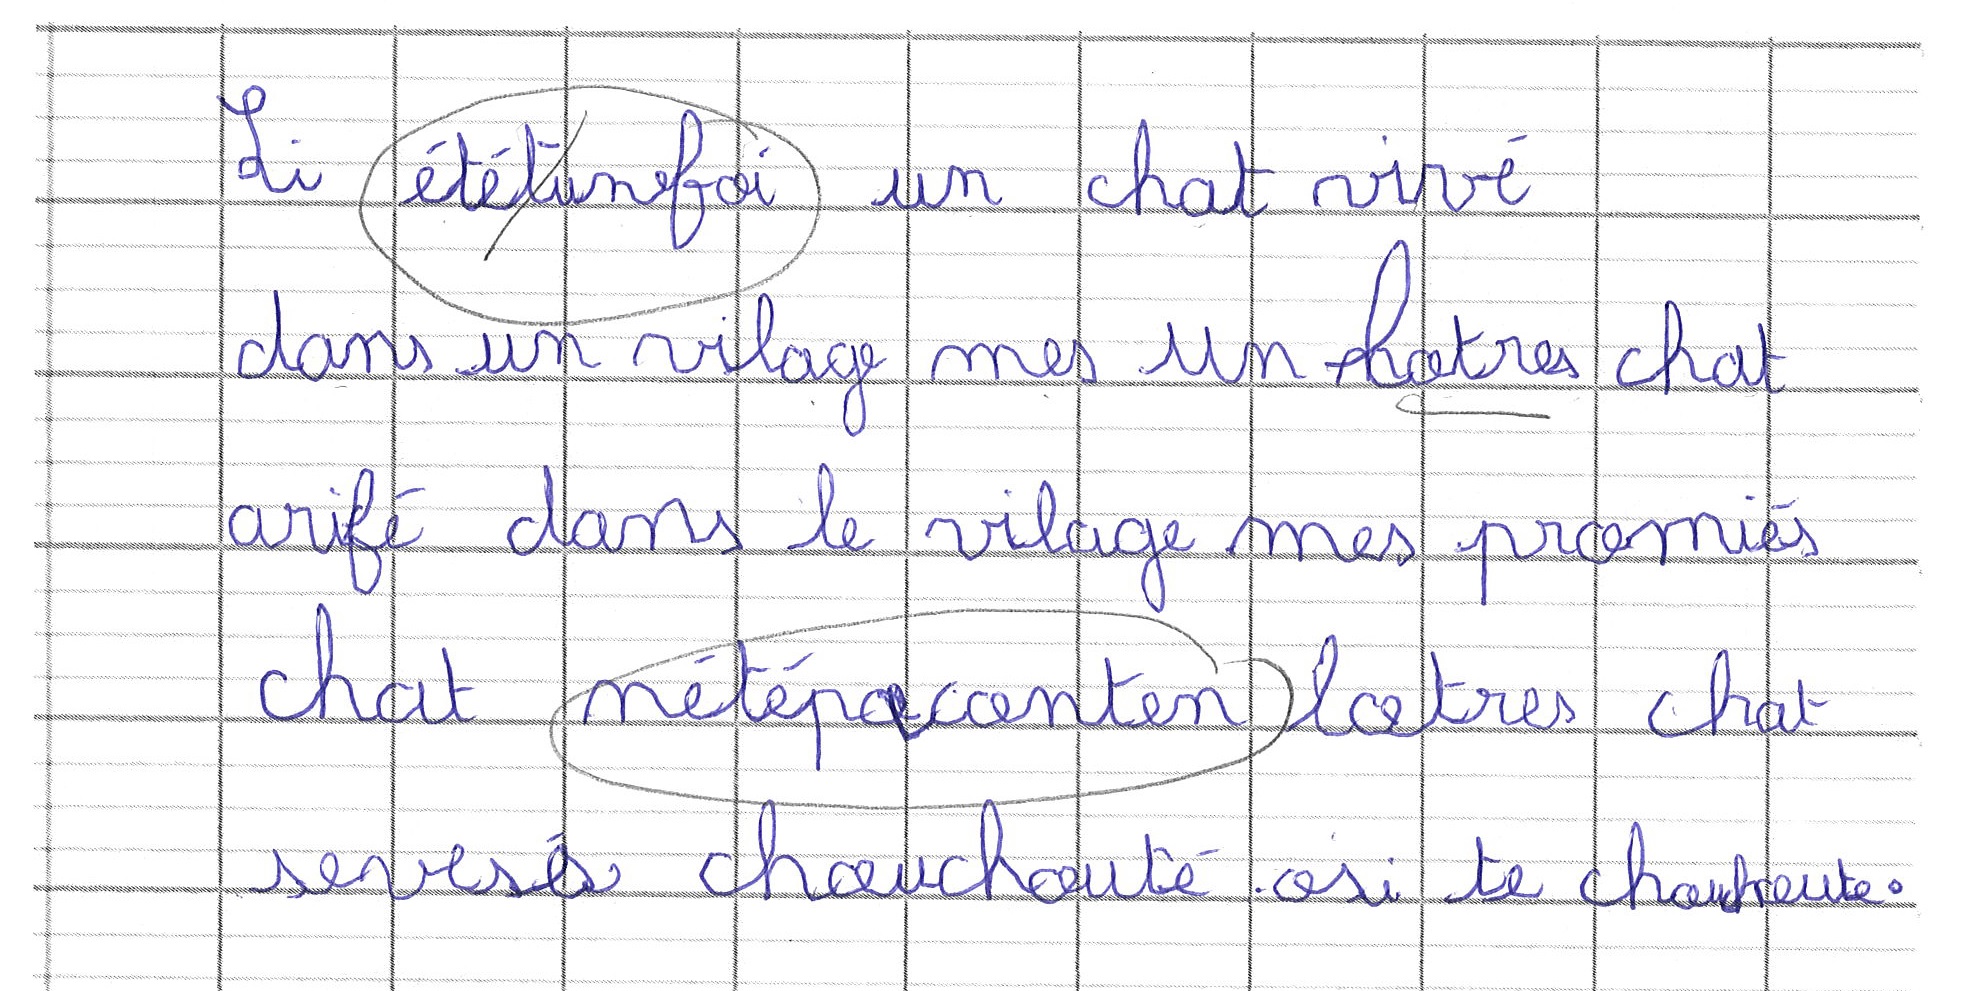 Li ététunefoi un chat vivé
dans un vilage mes un hotres chat
arifé dans le vilage mes promiés
chat nétépaconten lotres chat
chouchouté osi te